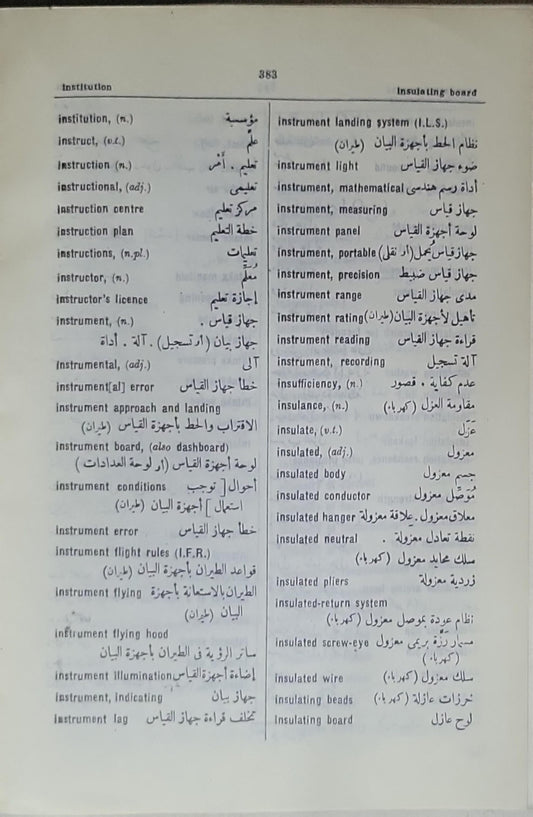 383
Institution
Insulating board
institution, (n.) مؤسسة
instruct, (v.t.) علّم
instruction (n.) تعليم . أمْر
instructional, (adj.) تعليمى
instruction centre مركز تعليم
instruction plan خطة التعليم
instructions, (n.pl.) تعليمات
instructor, (n.) مُعَلِّم
instructor's licence إجازة تعليم
instrument, (n.) جهاز قياس .
جهاز بيان (أو تسجيل) . آلة . أداة
instrumental, (adj.) آلى
instrument[al] error خطأ جهاز القياس
instrument approach and landing
الاقتراب والحط بأجهزة القياس (طيران)
instrument board, (also dashboard)
لوحة أجهزة القياس (أو لوحة العدادات)
instrument conditions أحوال [ توجب
استعمال ] أجهزة البيان (طيران)
instrument error خطأ جهاز القياس
instrument flight rules (I.F.R.)
قواعد الطيران بأجهزة البيان (طيران)
instrument flying الطيران بالاستعانة بأجهزة
البيان (طيران)
instrument flying hood
ساتر الرؤية فى الطيران بأجهزة البيان
instrument illumination إضاءة أجهزة القياس
instrument, indicating جهاز بيان
instrument lag تخلف قراءة جهاز القياس
instrument landing system (I.L.S.)
نظام الحط بأجهزة البيان (طيران)
instrument light ضوء جهاز القياس
instrument, mathematical أداة رسم هندسى
instrument, measuring جهاز قياس
instrument panel لوحة أجهزة القياس
instrument, portable جهاز قياس يُحمل (أو نقلى)
instrument, precision جهاز قياس ضبيط
instrument range مدى جهاز القياس
instrument rating تأهيل لأجهزة البيان (طيران)
instrument reading قراءة جهاز القياس
instrument, recording آلة تسجيل
insufficiency, (n.) عدم كفاية . قصور
insulance, (n.) مقاومة العزل (كهرباء)
insulate, (v.t.) عَزَل
insulated, (adj.) معزول
insulated body جسم معزول
insulated conductor مُوَصِّل معزول
insulated hanger معلاق معزول . علاقة معزولة
insulated neutral نقطة تعادل معزولة .
سلك محايد معزول (كهرباء)
insulated pliers زردية معزولة
insulated-return system
نظام عودة بموصل معزول (كهرباء)
insulated screw-eye مسمار رَزَّة بريمى معزول
(كهرباء)
insulated wire سلك معزول (كهرباء)
insulating beads خرزات عازلة (كهرباء)
insulating board لوح عازل